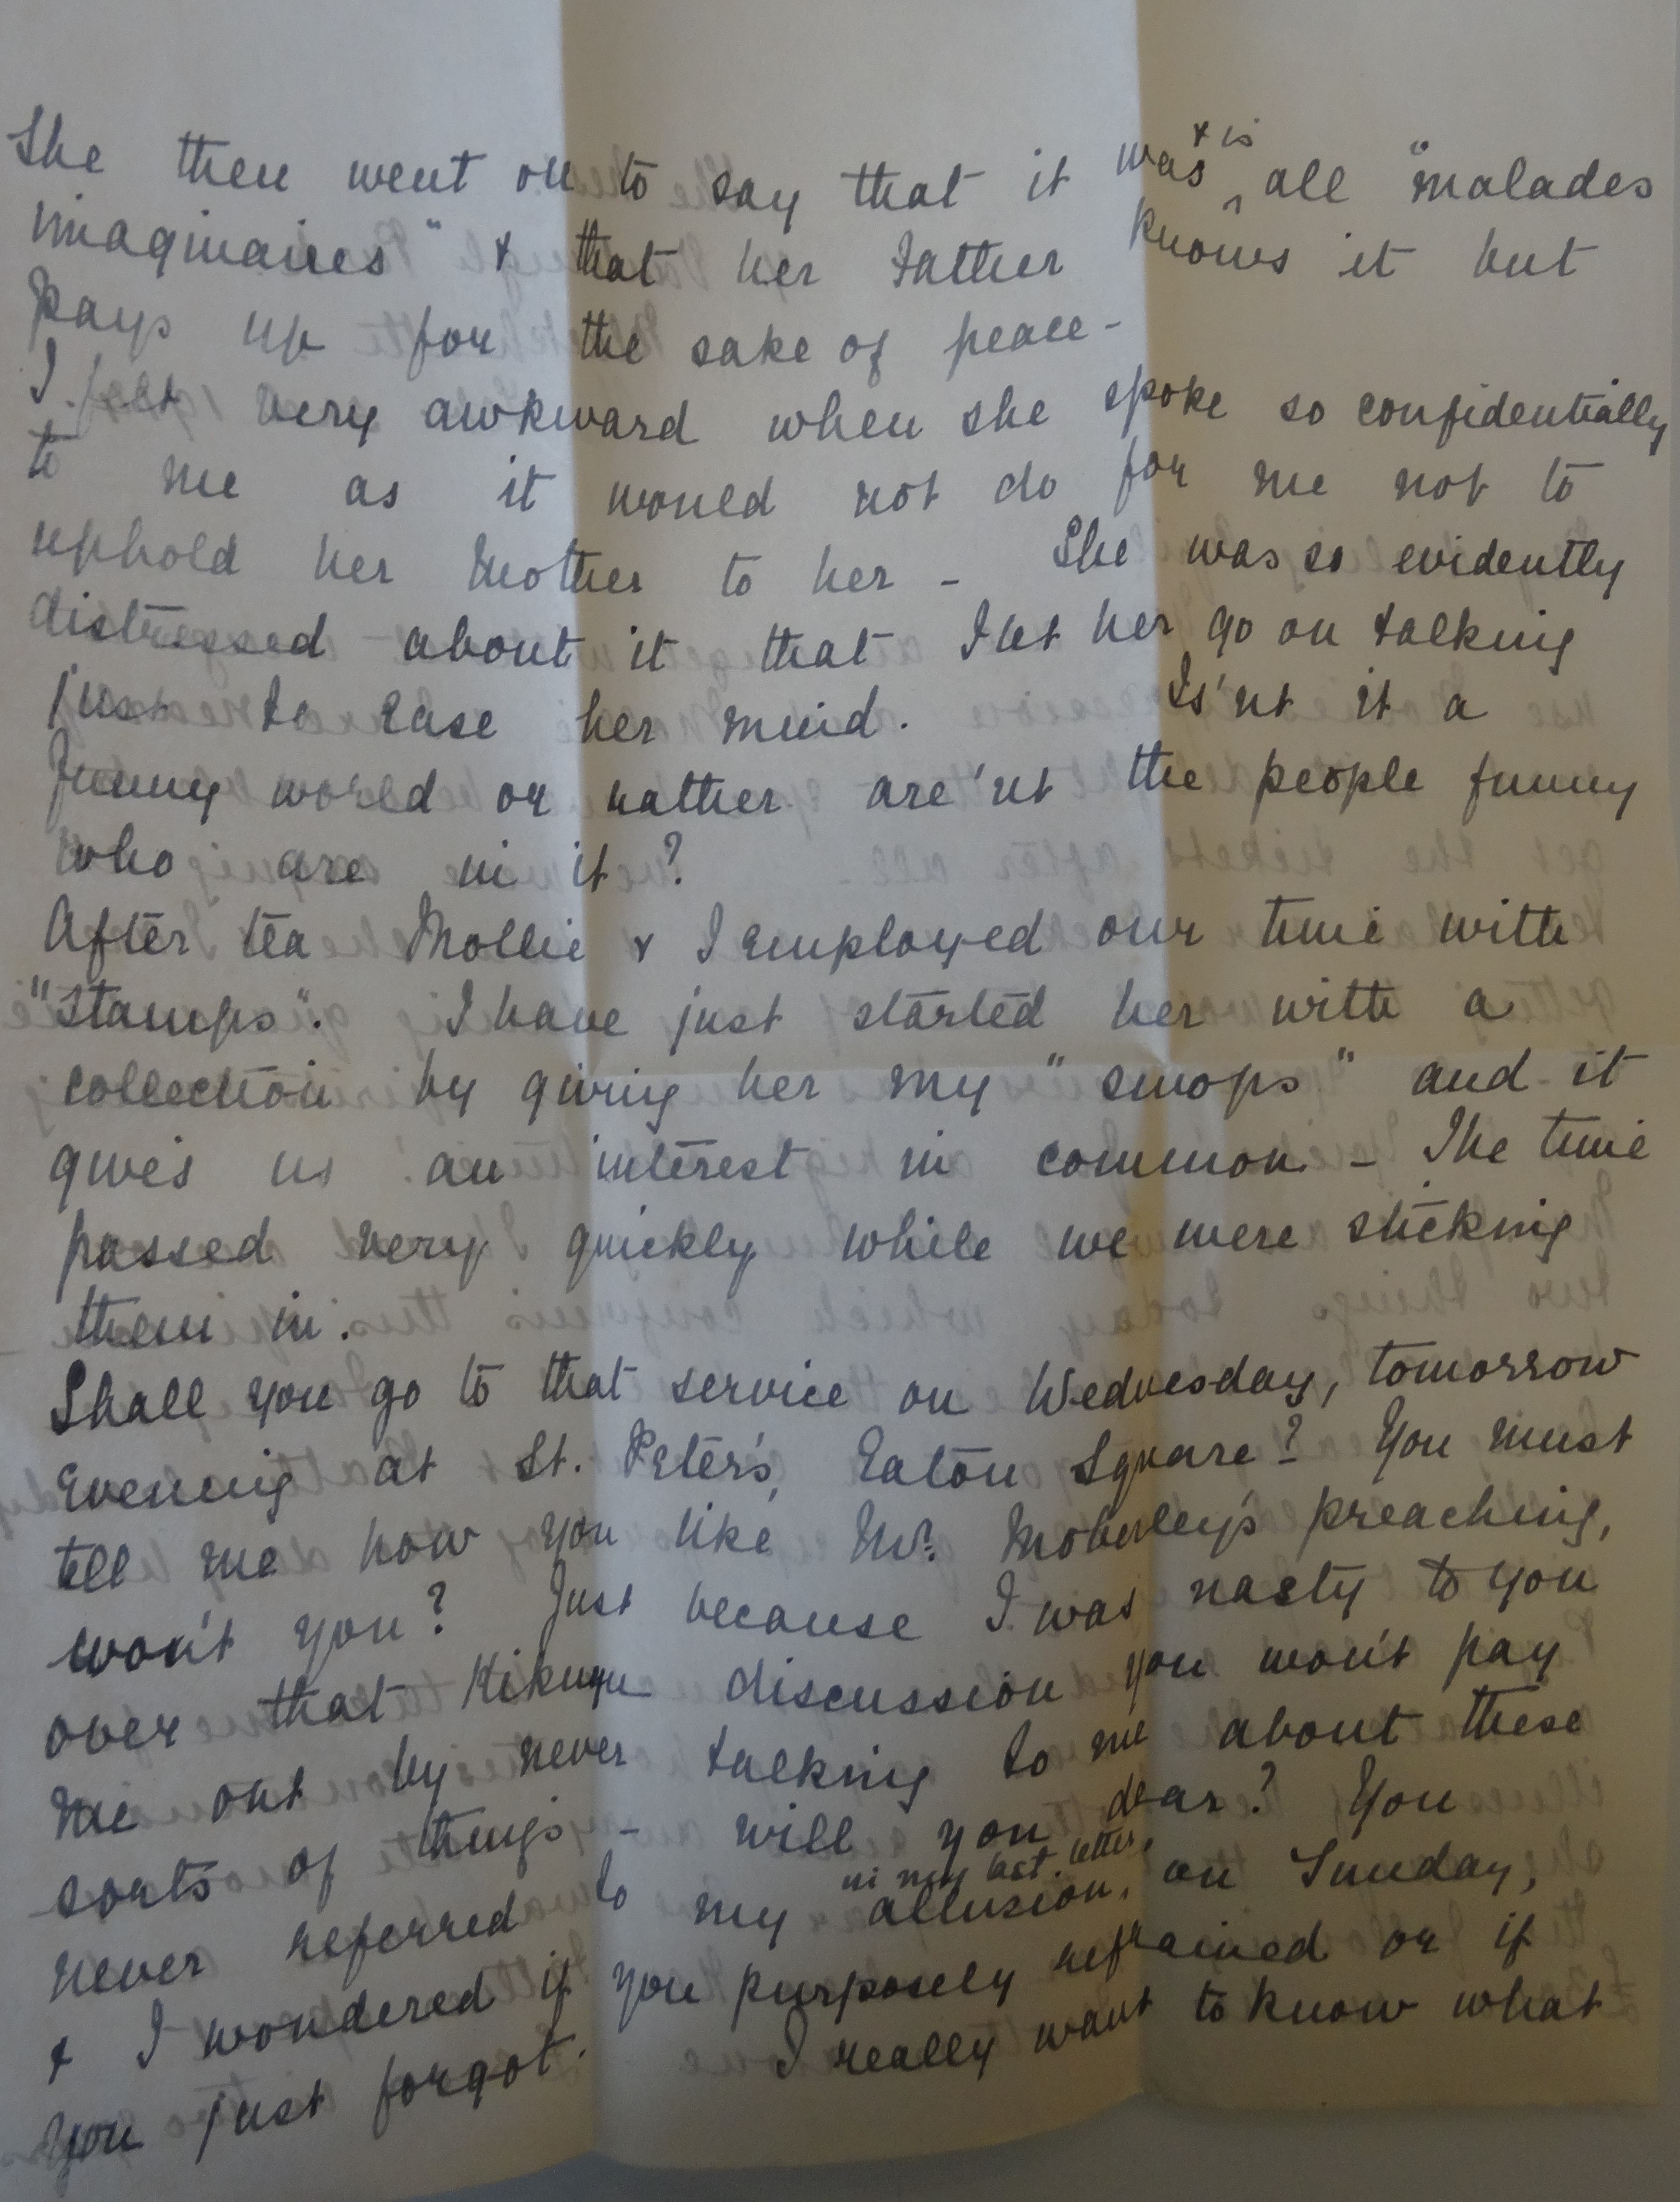 She then went on to say that it was ^ & is all "malades
imaginaires" & that her Father knows it but
pays up for the sake of peace -
I felt very awkward when she spoke so confidentially
to me as it would not do for me not to
uphold her Mother to her - She was so evidently
distressed about it that I let her go on talking
just to ease her mind. Is'nt it a
funny world or rather are'nt the people funny
who are in it?
After tea Mollie & I employed our time with
"stamps". I have just started her with a
collection by giving her my "swops" and it
gives us an interest in common - The time
passed very quickly while we were sticking
them in.
Shall you go to that service on Wednesday, tomorrow
Evening at St. Peter's, Eaton Square? You must
tell me how you like Mr. Moberley's preaching,
won't you? Just because I was nasty to you
over that Kikuyu discussion you won't pay
me out by never talking to me about these
sorts of things - will you dear? You
never referred to my allusion, in my last letter, on Sunday,
& I wondered if you purposely refrained or if
you just forgot. I really want to know what